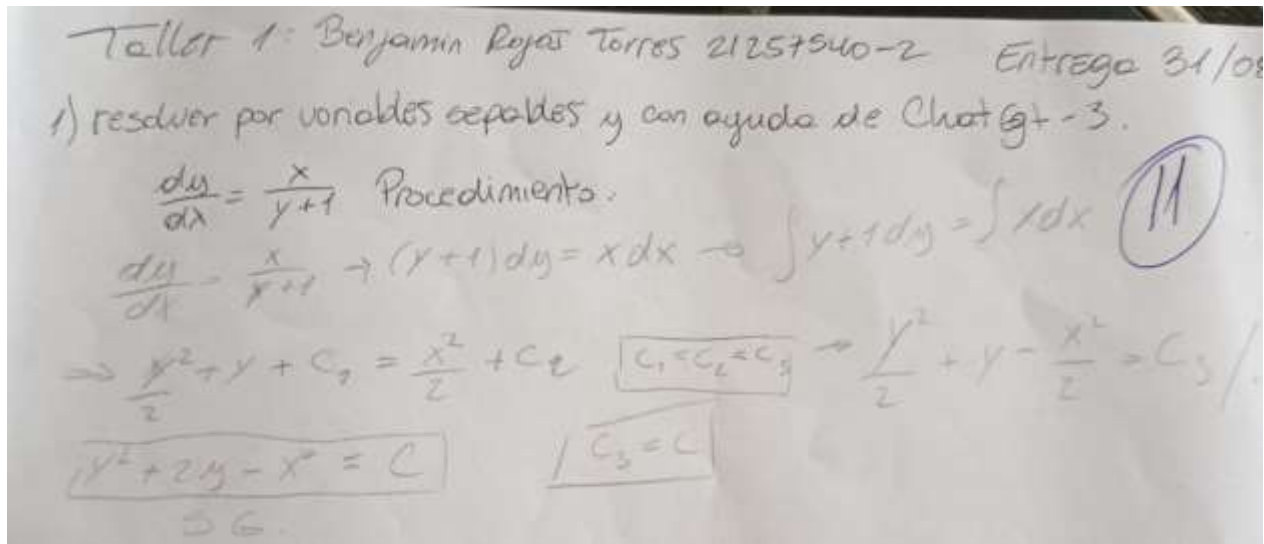 Taller 1: Benjamin Rojas Torres 21257540-2 Entrega 31/08
1) resolver por variables sepables y con ayuda de Chat gt -3.
dy/dx = x/y+1 Procedimiento.
11
dy/dx = x/y+1 → (y+1)dy = xdx → ∫y+1dy = ∫xdx
⇒ y²/2 + y + C₁ = x²/2 + C₂ C₁=C₂=C₃ → y²/2 + y - x²/2 = C₃ /.
y² + 2y - x² = C C₃ = C
SG.